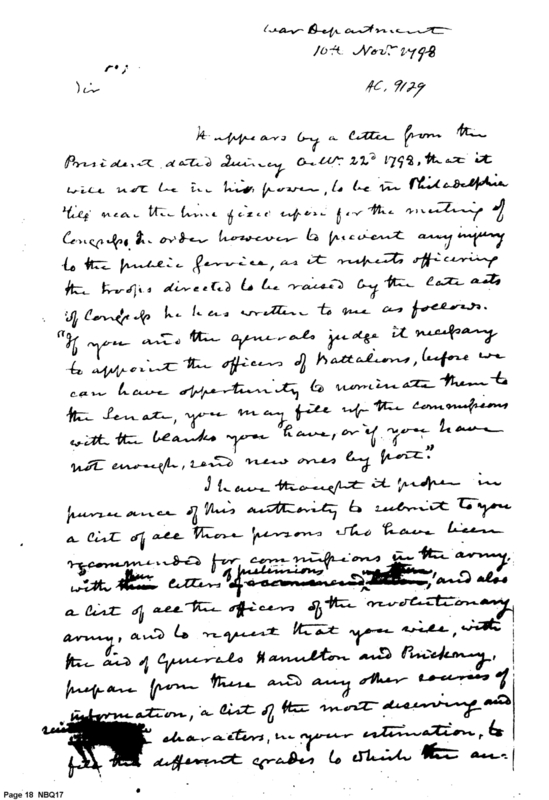 War Department
10th Novr. 1798
Sir
AC. 9129
It appears by a letter from the
President, dated Quincy Octbr. 22d 1798, that it
will not be in his power, to be in Philadelphia
'till near the time fixed upon for the meeting of
Congress. In order however to prevent any injury
to the public Service, as it respects officering
the troops directed to be raised by the late acts
of Congress he has written to me as follows.
"If you and the generals judge it necessary
to appoint the officers of Battalions, before we
can have opportunity to nominate them to
the Senate, you may fill up the commissions
with the blanks you have, or if you have
not enough, send new ones by post."
I have thought it proper in
pursuance of this authority to submit to you
a list of all those persons who have been
recommended for commissions in the army,
with their letters of pretensions and also
a list of all the officers of the revolutionary
army, and to request that you will, with
the aid of Generals Hamilton and Pinckney,
prepare from these and any other sources of
information, a list of the most deserving and
characters, in your estimation, to
fill the different grades to which the au-
Page 18 NBQ17